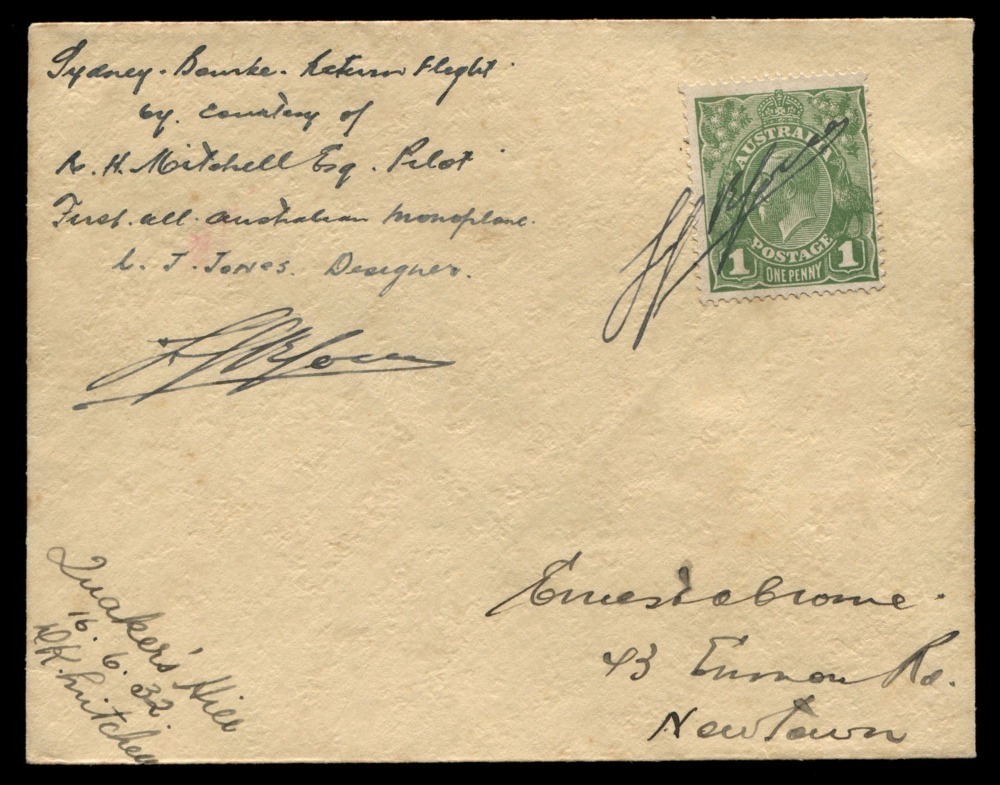 Sydney - Bourke - Return Flight
by courtesy of
R. H. Mitchell Esq. Pilot
First all australian monoplane.
L. J. Jones. Designer.
AUSTRALIA
POSTAGE
1 ONE PENNY 1
Quaker's Hill
16. 6. 32.
Ernest Crome.
43 Enmore Rd.
Newtown